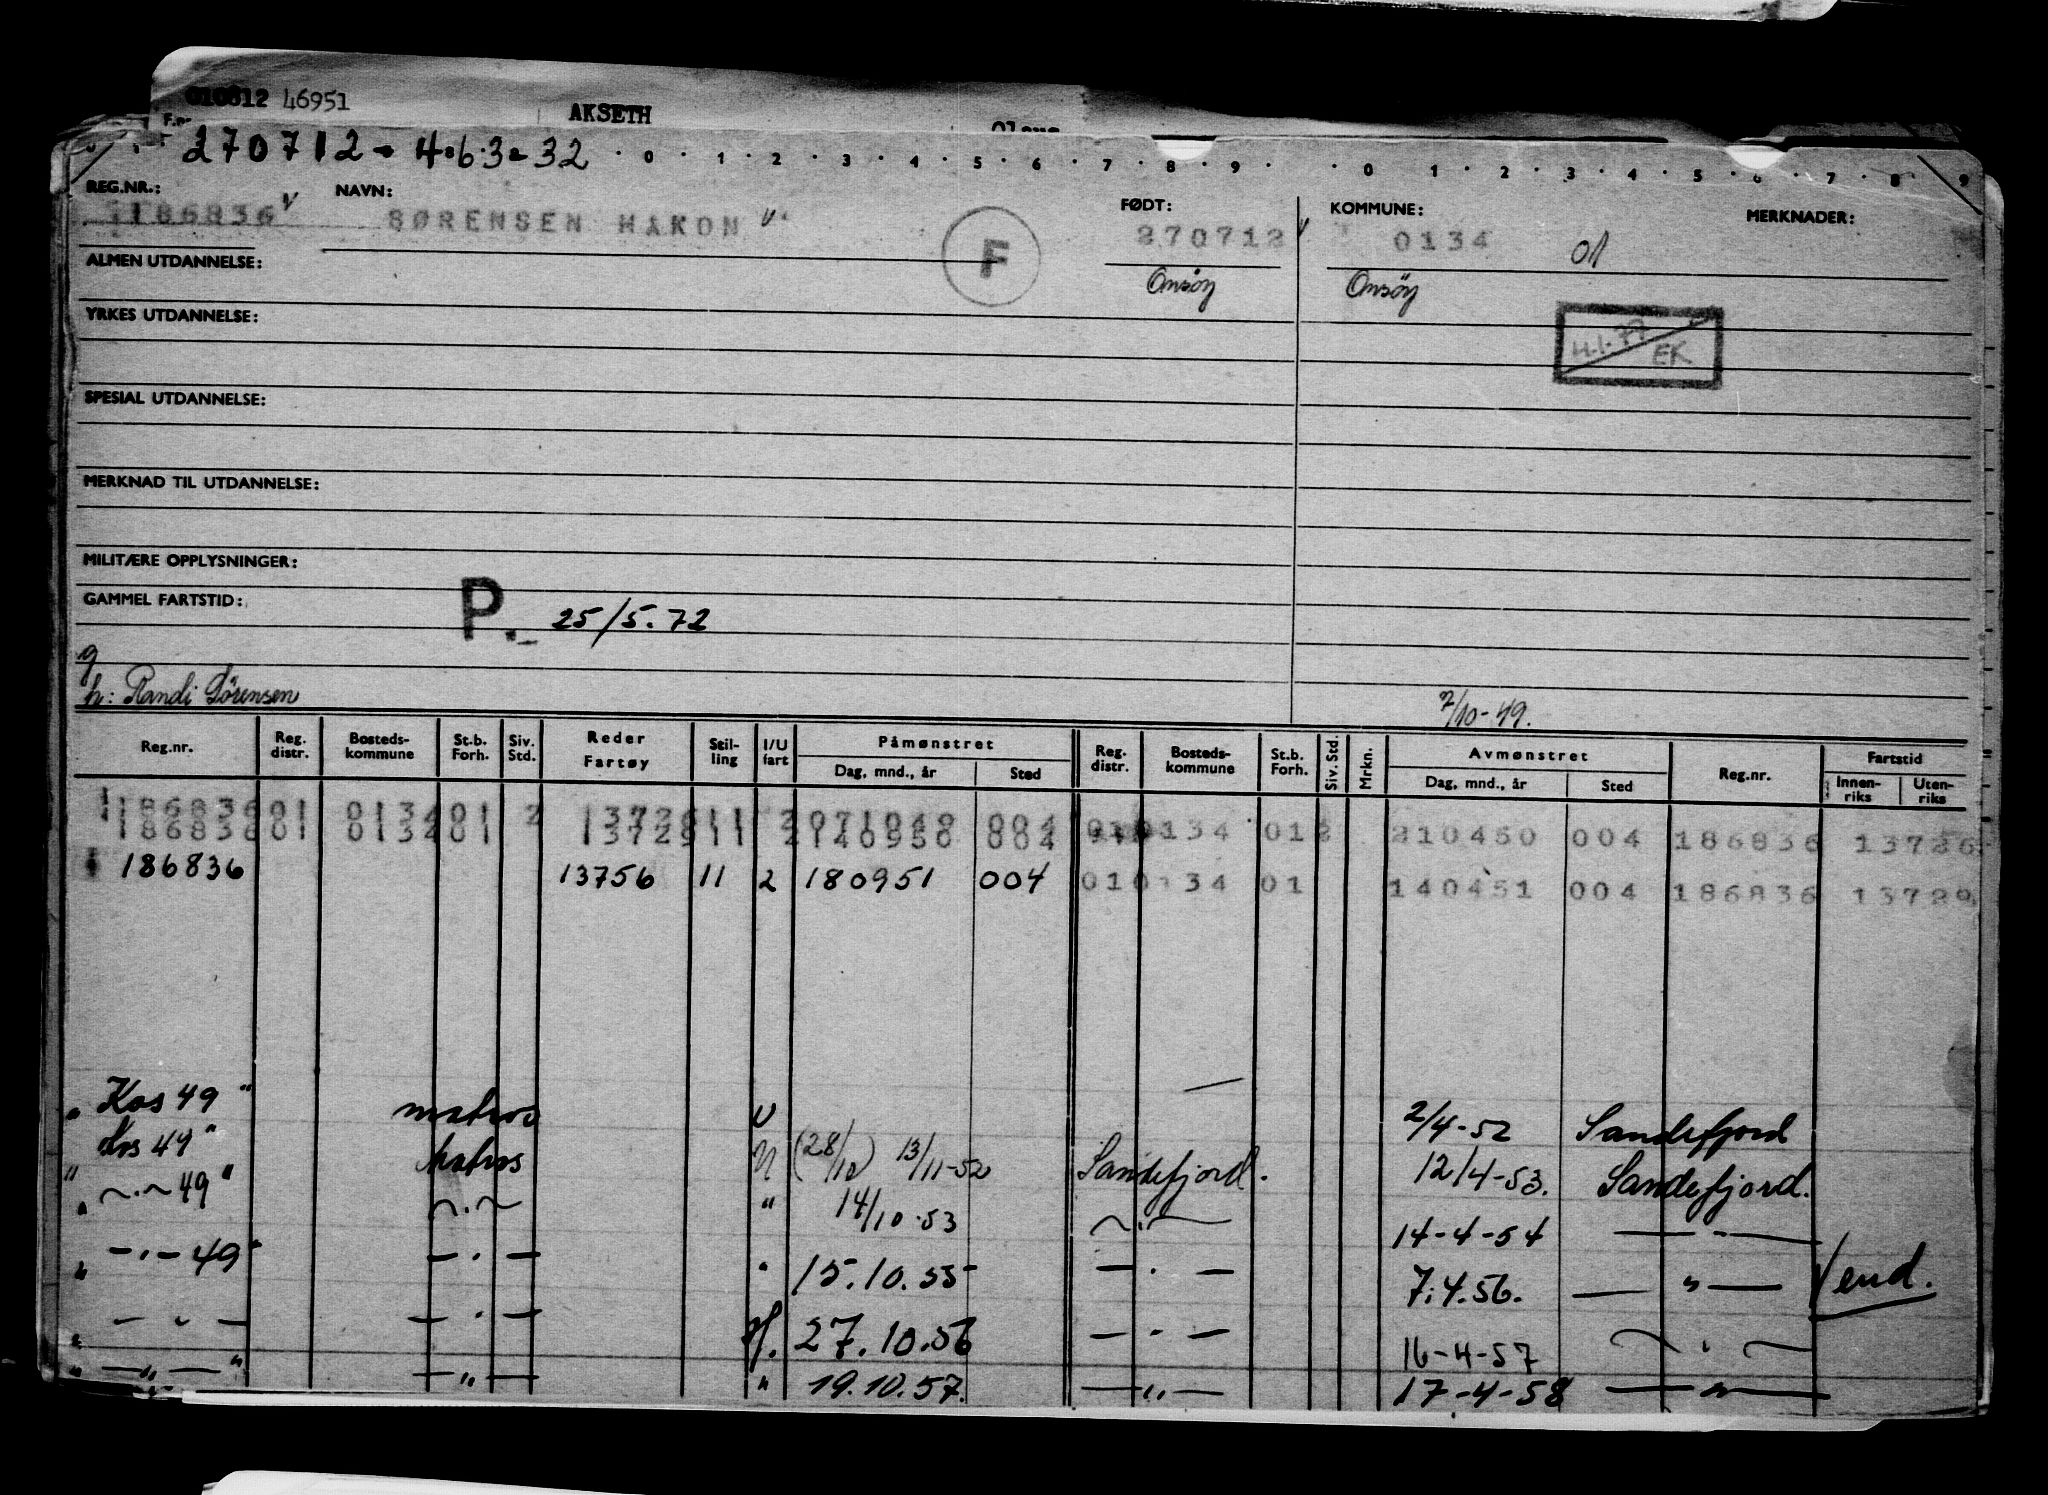 010812 46951 AKSETH
270712 - 4.6.3-32 · 0 · 1 · 2 · 3 · 4 · 5 · 6 · 7 · 8 · 9 · · 0 · 1 · 2 · 3 · 4 · 5 · 6 · 7 · 8 · 9
REG.NR.: NAVN: FØDT: KOMMUNE: MERKNADER:
186836 v SØRENSEN HAKON v F 270712 v 0134 01
ALMEN UTDANNELSE: Onsøy Onsöy
YRKES UTDANNELSE: 4.1.77 EK
SPESIAL UTDANNELSE:
MERKNAD TIL UTDANNELSE:
MILITÆRE OPPLYSNINGER:
GAMMEL FARTSTID: P. 25/5.72
g
h: Randi Sörensen 7/10-49.
Reg.nr. Reg. distr. Bosteds-kommune St.b. Forh. Siv. Std. Reder Fartøy Stil-ling I/U fart Påmønstret Reg. distr. Bosteds-kommune St.b. Forh. Siv. Std. Mrkn. Avmønstret Reg.nr. Fartstid
Dag, mnd., år Sted Dag, mnd., år Sted Innen-riks Uten-riks
186836 01 0134 01 2 13726 11 2 071049 004 01 0134 01 2 210450 004 186836 13726
186836 01 0134 01 13729 11 2 140950 004
186836 13756 11 2 180951 004 01 0134 01 140451 004 186836 13729
" Kos 49 " matros U — 2/4-52 Sandefjord
Kos 49 " Matros U (28/10) 13/11-52 Sandefjord. 12/4-53. Sandefjord.
" ~·~ 49 " ~·~ " 14/10·53 ~·— 14-4-54 — " —
" —·— 49 " —·— " 15.10.55 —·— 7.4.56. — " — Vend.
" —·— —·— 27.10.56 —·— 16-4-57 ~·~
" — " — " — " — " 19.10.57. — " — 17-4-58 — " —